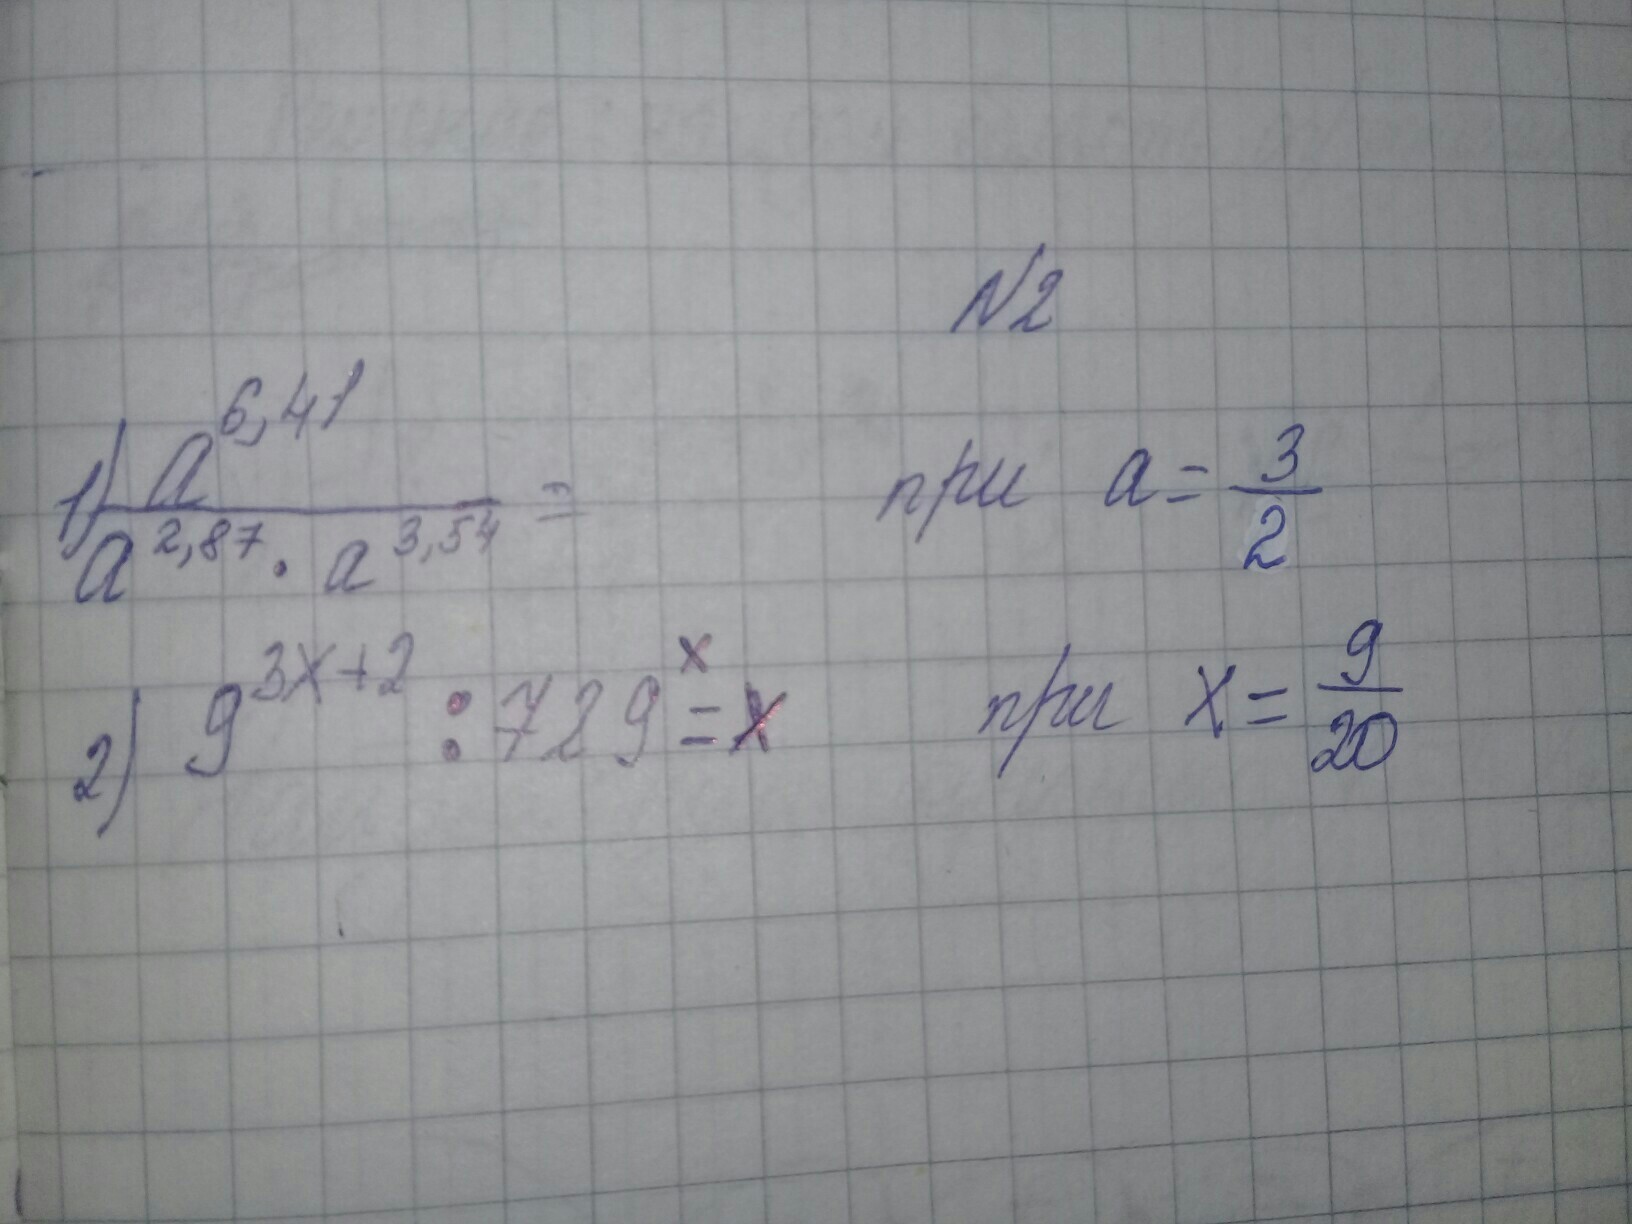 N2
1) a^6,41 / a^2,87 · a^3,54 = при a = 3/2
2) 9^3x+2 : 729^x = x при x = 9/20